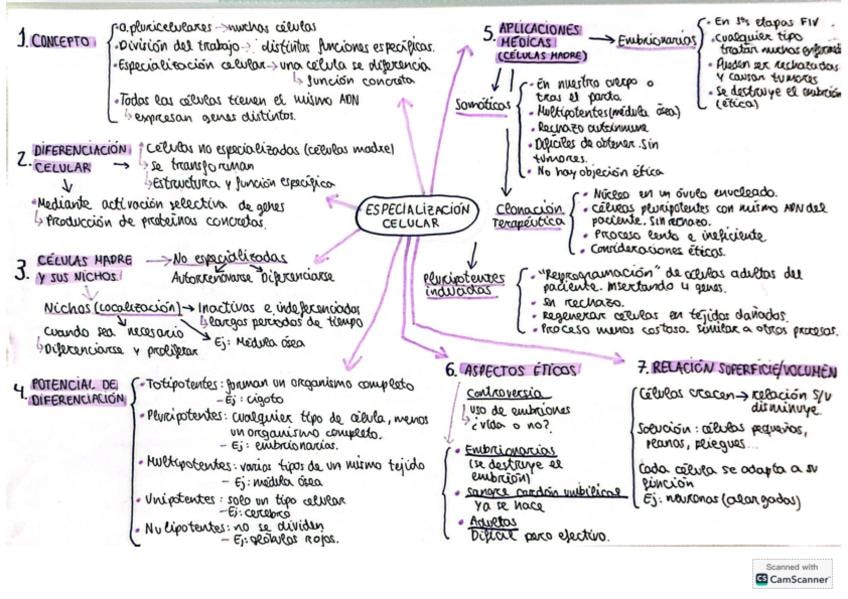 1. CONCEPTO
· o. pluricelulares → muchas células
· División del trabajo → distintas funciones específicas.
· Especialización celular → una célula se diferencia
↳ función concreta
· Todas las células tienen el mismo ADN
↳ expresan genes distintos.
2. DIFERENCIACIÓN CELULAR →
Células no especializadas (células madre)
↳ se transforman
↳ Estructura y función específica
· Mediante activación selectiva de genes
↳ Producción de proteínas concretas.
3. CÉLULAS MADRE Y SUS NICHOS.
→ No especializadas
Autorrenovarse Diferenciarse
Nichos (localización) → Inactivas e indeferenciadas
↳ largos periodos de tiempo
cuando sea necesario
↳ Diferenciarse y proliferar
Ej: Médula ósea
4. POTENCIAL DE DIFERENCIACIÓN
· Totipotentes: forman un organismo completo
- Ej: cigoto
· Pluripotentes: cualquier tipo de célula, menos
un organismo completo.
- Ej: embrionarias.
· Multipotentes: varios tipos de un mismo tejido
- Ej: médula ósea
· Unipotentes: solo un tipo celular
- Ej: cerebro
· Nulipotentes: no se dividen
- Ej: glóbulos rojos.
ESPECIALIZACIÓN
CELULAR
5. APLICACIONES
MÉDICAS
(CÉLULAS MADRE)
→ Embrionarias
· En etapas FIV
· Cualquier tipo
tratan muchas
· Pueden ser rechazadas
y causar tumores
· Se destruye el embrión
(ética)
Somáticas
· En nuestro cuerpo o
tras el parto.
· Multipotentes (médula ósea)
· Rechazo autoinmune
· Difíciles de obtener. Sin
tumores.
· No hay objeción ética
Clonación
Terapéutica
· Núcleo en un óvulo enucleado.
· Células pluripotentes con mismo ADN del
paciente. Sin rechazo.
· Proceso lento e ineficiente
· Consideraciones éticas.
Pluripotentes
inducidas
· "Reprogramación" de células adultas del
paciente. Insertando 4 genes.
· Sin rechazo.
· Regenerar células en tejidos dañados.
· Proceso menos costoso. Similar a otros procesos.
6. ASPECTOS ÉTICOS
Controversia
↳ uso de embriones
↳ ¿vida o no?
· Embrionarias
(se destruye el
embrión)
· Sangre cordón umbilical
Ya se hace
· Adultas
Difícil pero efectivo.
7. RELACIÓN SUPERFICIE/VOLUMEN
Células crecen → relación S/V
disminuye.
Solución: células pequeñas,
planas, pliegues...
Cada célula se adapta a su
función
Ej: neuronas (alargadas)
Scanned with
CS CamScanner